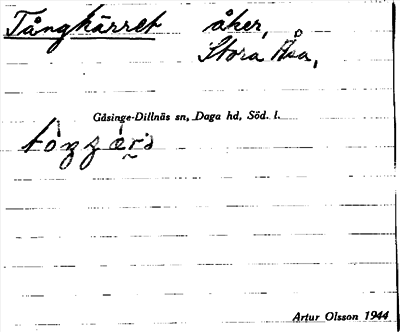 Tångkärret åker,
Stora Åsa,
Gåsinge-Dillnäs sn, Daga hd, Söd. l.
Artur Olsson 1944